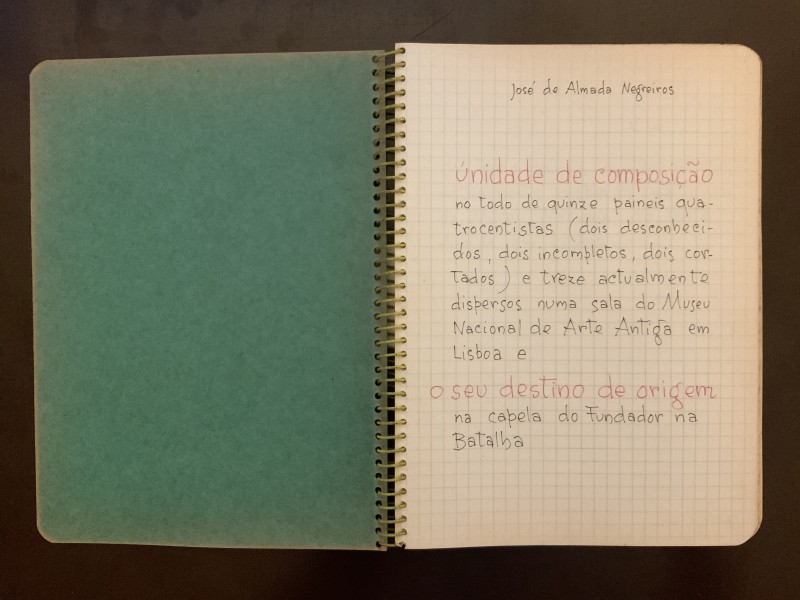 José de Almada Negreiros
únidade de composição
no todo de quinze paineis qua-
trocentistas (dois desconheci-
dos, dois incompletos, dois cor-
tados) e treze actualmente
dispersos numa sala do Museu
Nacional de Arte Antiga em
Lisboa e
o seu destino de origem
na capela do Fundador na
Batalha